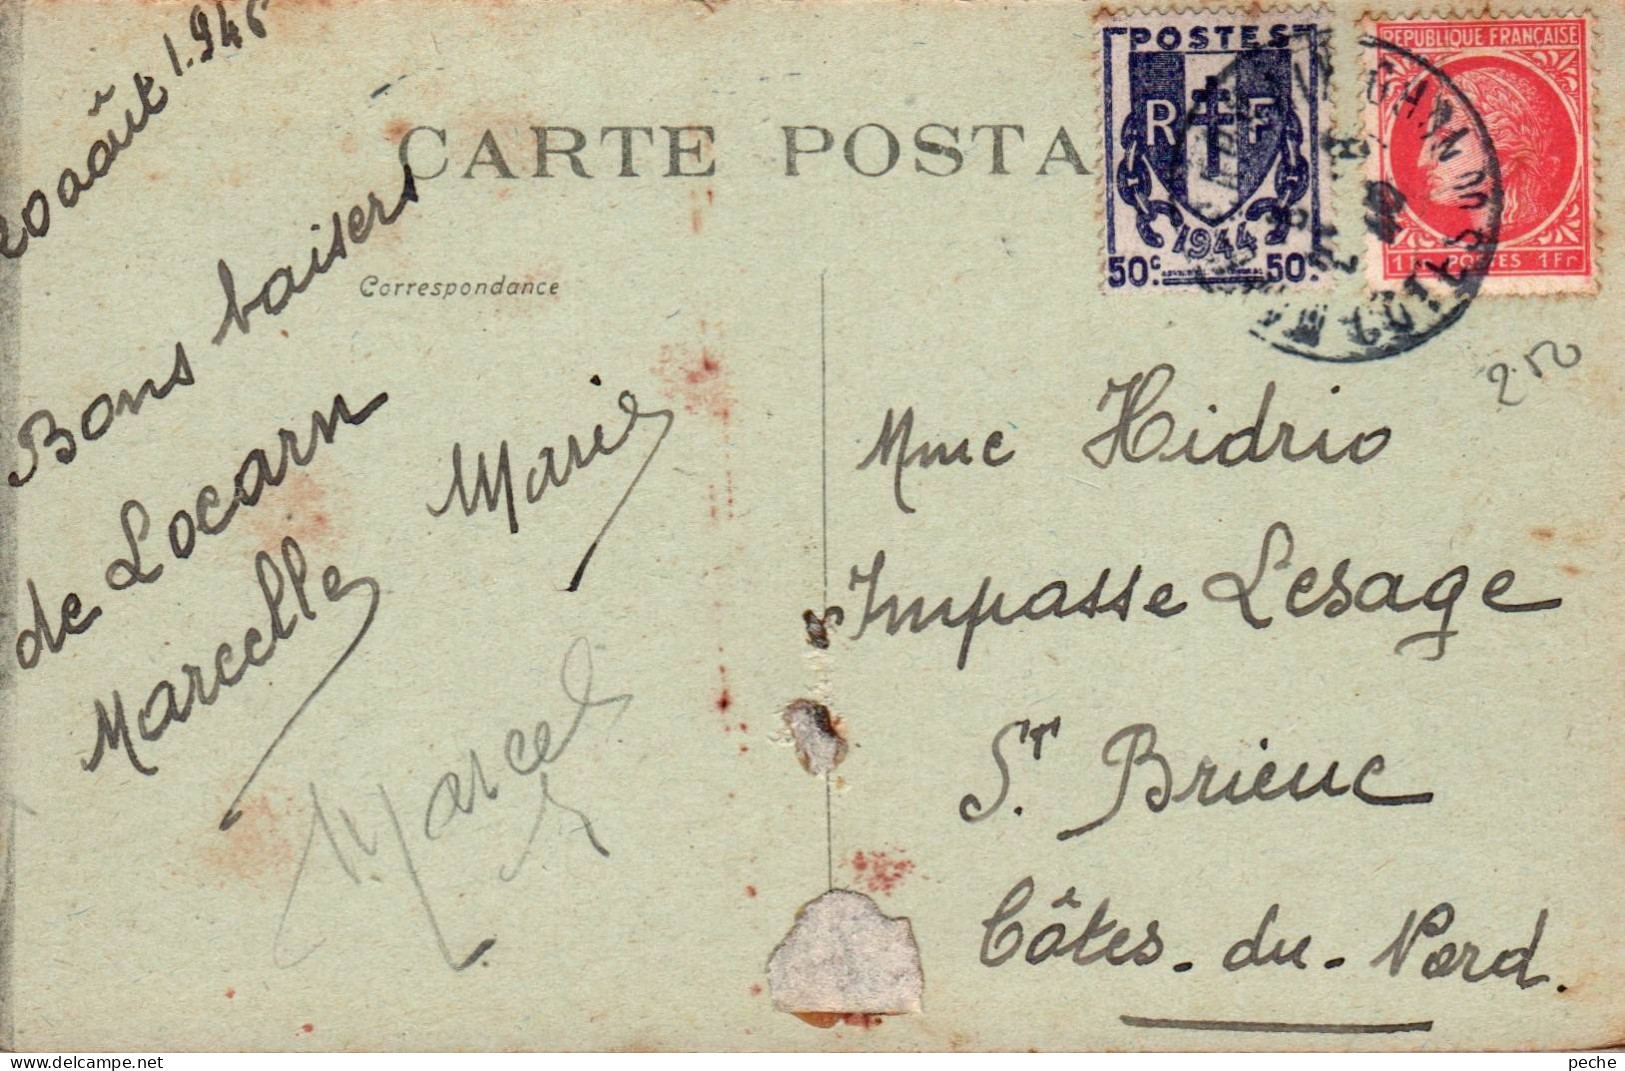 20 août 1.946
CARTE POSTA
Correspondance
Bons baisers
de Locarn
Marcelle Marie
Marcel
POSTES
R F
1944
50c. 50c.
REPUBLIQUE FRANÇAISE
POSTES 1Fr
COTES DU NORD
2.50
Mme Hidrio
Impasse Lesage
St. Brieuc
Côtes-du-Nord.
peche